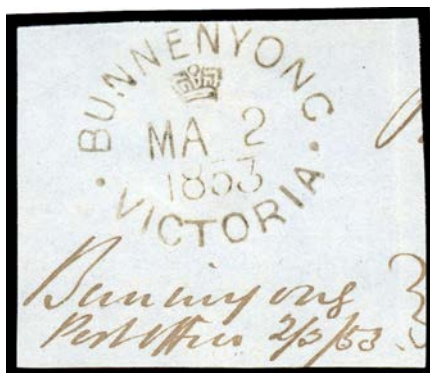 BUNNENYONG
MA 2
1853
VICTORIA
Buninyong
Post Office 2/3/53